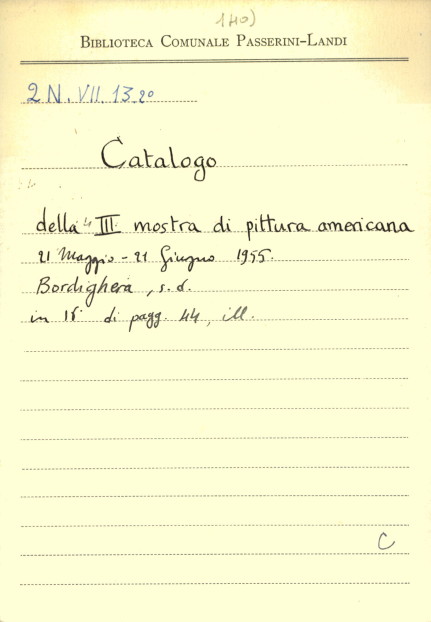 140)
BIBLIOTECA COMUNALE PASSERINI-LANDI
2 N. VII. 13.20
Catalogo
della III mostra di pittura americana
21 Maggio - 21 Giugno 1955.
Bordighera, s. d.
in 15° di pagg. 44, ill.
C